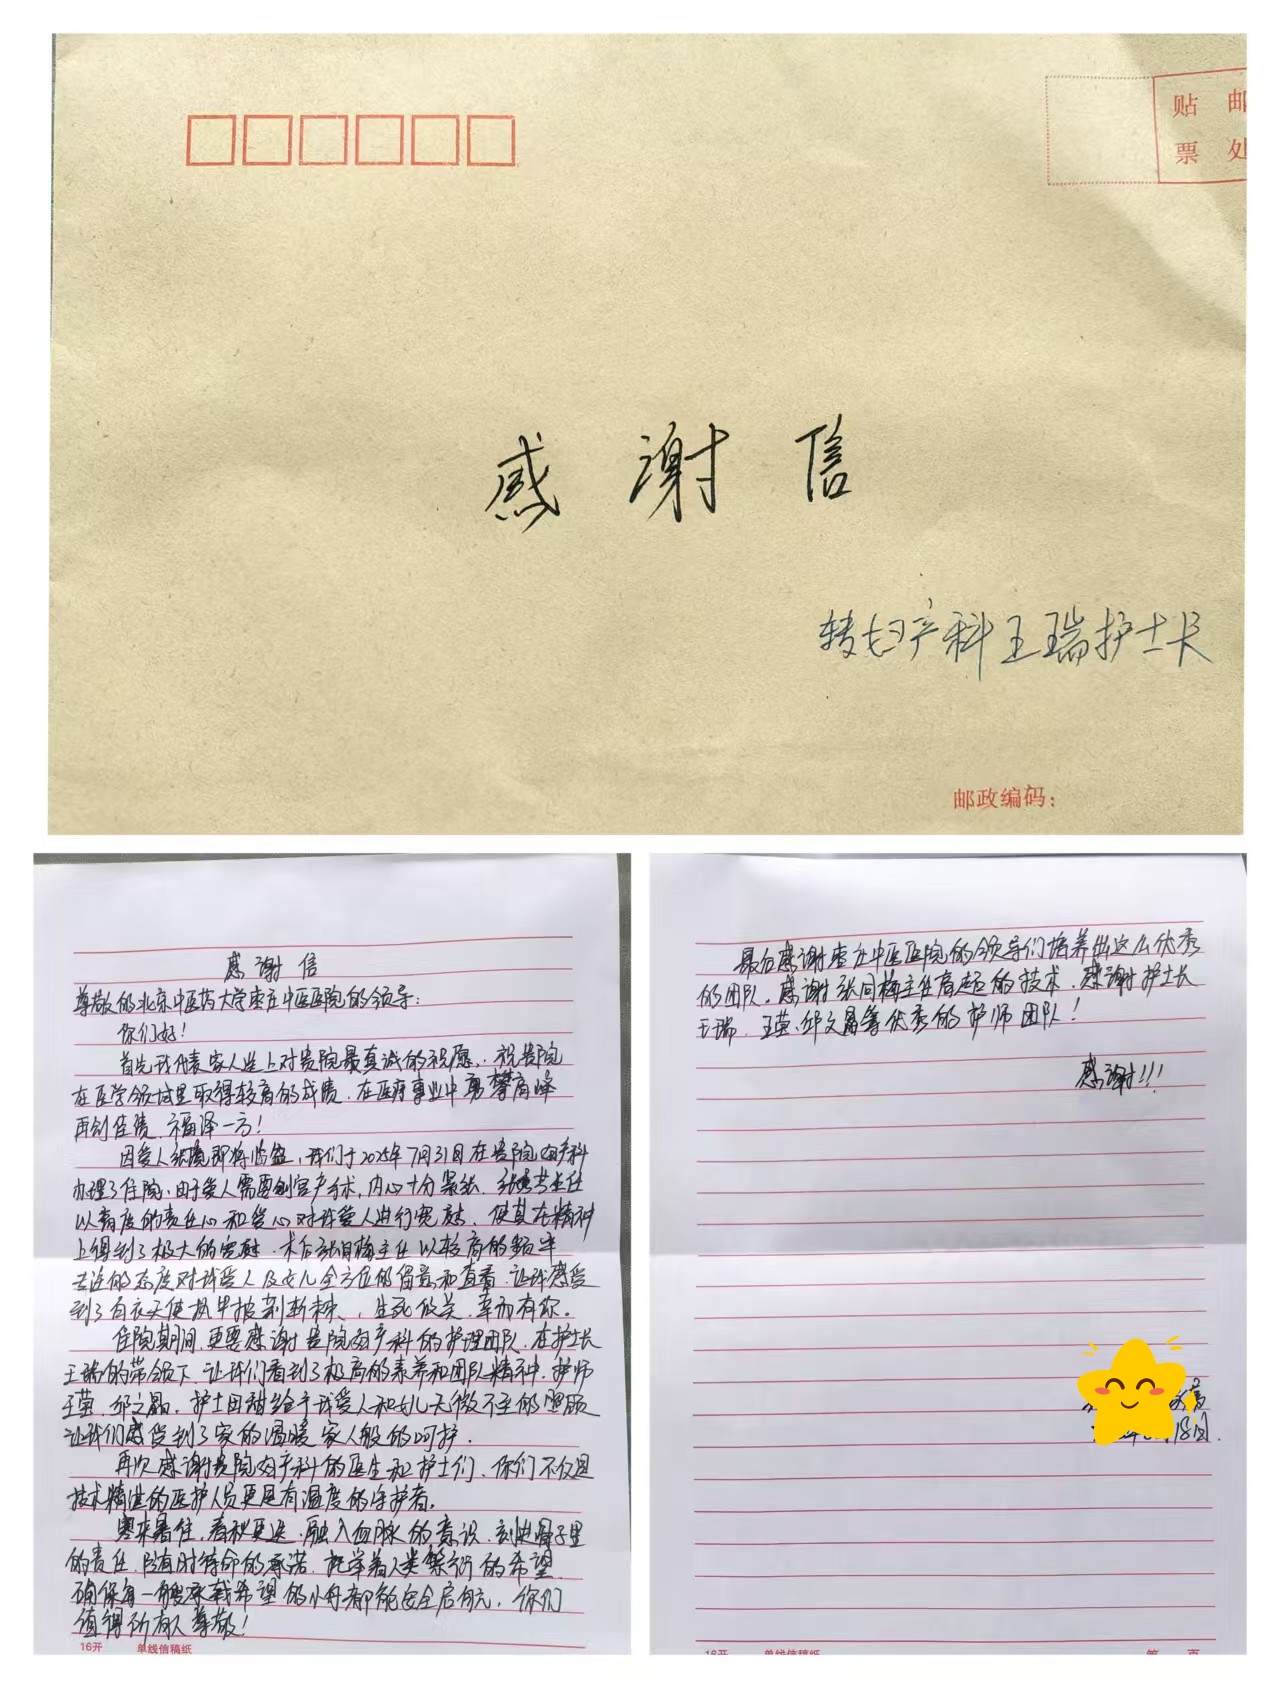 贴 邮
票 处
感 谢 信
转妇产科王瑞护士长
邮政编码：
感 谢 信
尊敬的北京中医药大学枣庄中医医院的领导：
你们好！
首先我代表家人送上对贵院最真诚的祝愿，祝贵院
在医学领域里取得较高的成绩，在医疗事业中勇攀高峰
再创佳绩，福泽一方！
因爱人张 即将临盆，我们于2025年7月31日在贵院妇产科
办理了住院，由于爱人需要剖宫产手术，内心十分紧张，张 主任
以高度的责任心和爱心对我爱人进行宽慰，使其在精神
上得到了极大的宽慰，术后张同梅主任以较高的频率
的态度对我爱人及女儿全方位的 和查看，让我感受
到了白衣天使执甲披荆斩棘、生死攸关，幸而有你。
住院期间，更要感谢贵院妇产科的护理团队，在护士长
王瑞的带领下，让我们看到了极高的素养和团队精神，护师
王莹、邱文晶，护士田甜给予我爱人和女儿无微不至的照顾
让我们感受到了家的温暖家人般的呵护。
再次感谢贵院妇产科的医生和护士们，你们不仅是
技术精湛的医护人员更是有温度的守护者。
寒来暑往，春秋更迭，融入血脉的意识，刻进骨子里
的责任，随时待命的承诺，托举着人类繁衍的希望
确保每一艘承载希望的小舟都能安全启航，你们
值得所有人尊敬！
16开 单线信稿纸
最后感谢枣庄中医医院的领导们培养出这么优秀
的团队，感谢张同梅主任高超的技术，感谢护士长
王瑞、王莹、邱文晶等优秀的护师团队！
感谢！！！
18日
16开 单线信稿纸 第 页